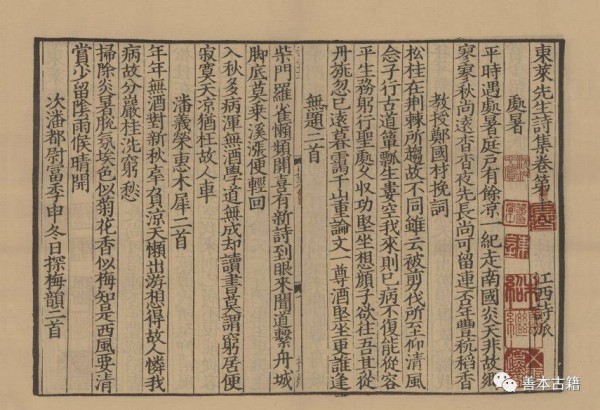 東萊先生詩集卷第
江西詩派
處暑
平時遇處暑庭戶有餘凉一紀走南國炎天非故鄉
寥寥秋尚遠杳杳夜先長尚可留連否年豐秔稻香
教授鄭國材挽詞
松桂在荆棘所趨故不同雖云被剪伐所至仰清風
念子行古道簞瓢生屢空我來則已病不復能從容
平生務躬行聖處久收功堅坐想顏子欲往吾其從
丹旐忽已遠暮靄千山重論文一尊酒堅坐更誰逢
無題二首
柴門羅雀懶頻開喜有新詩到眼來聞道繫舟城
脚底莫乘溪漲便輕回
入秋多病渾無酒學道無成却讀書莫謂窮居便
寂寞天凉猶枉故人車
潘義榮惠木犀二首
年年無酒對新秋亭負涼天懶出游想得故人憐我
病故分巖桂洗窮愁
掃除炎暑脫氛埃色似菊花香似梅知是西風要清
賞少留陰雨候晴開
次潘都尉富季申冬日探梅韻二首
善本古籍